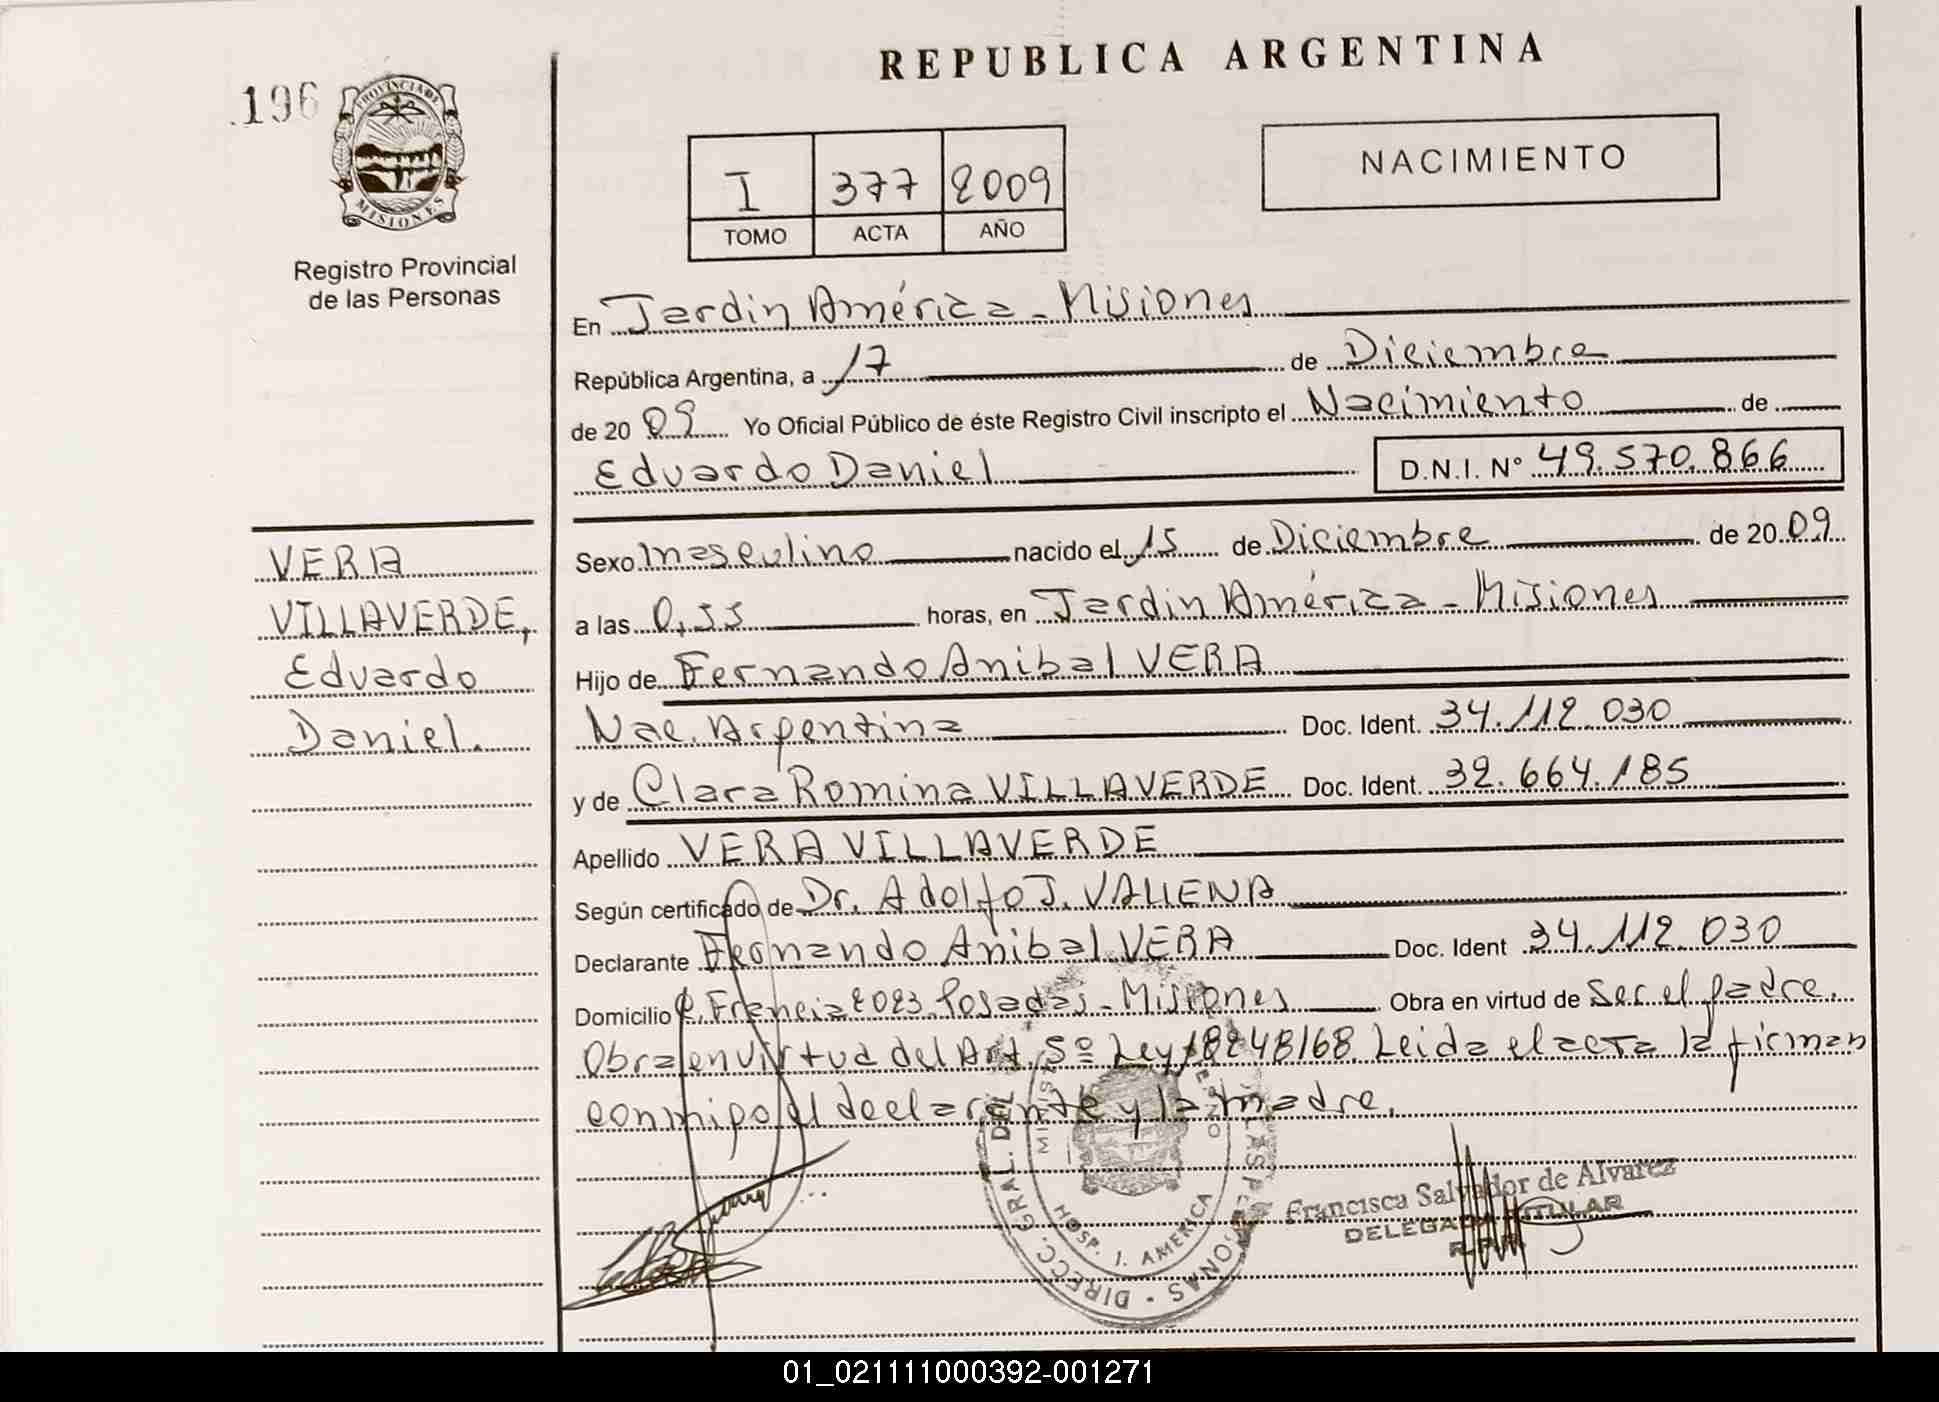 REPUBLICA ARGENTINA
196
PROVINCIA DE
MISIONES
Registro Provincial
de las Personas
I 377 2009
TOMO ACTA AÑO
NACIMIENTO
En Jardin América - Misiones
República Argentina, a 17 de Diciembre
de 20 09 Yo Oficial Público de éste Registro Civil inscripto el Nacimiento de
Eduardo Daniel D.N.I. Nº 49.570.866
VERA
VILLAVERDE,
Eduardo
Daniel.
Sexo masculino nacido el 15 de Diciembre de 20 09
a las 0,55 horas, en Jardin América - Misiones
Hijo de Fernando Anibal VERA
Nac. Argentina Doc. Ident. 34.112.030
y de Clara Romina VILLAVERDE Doc. Ident. 32.664.185
Apellido VERA VILLAVERDE
Según certificado de Dr. Adolfo J.
Declarante Fernando Anibal VERA Doc. Ident 34.112.030
Domicilio C. Francia 2023. Posadas - Misiones Obra en virtud de Ser el padre.
Obra en virtud del Art. 5º Ley 18248/68. Leida el acta la firman
conmigo el declarante y la madre.
DIRECC. GRAL. DEL
HOSP. J. AMERICA
Francisca Salvador de Alvarez
DELEGADA TITULAR
R.P.P.
01_021111000392-001271